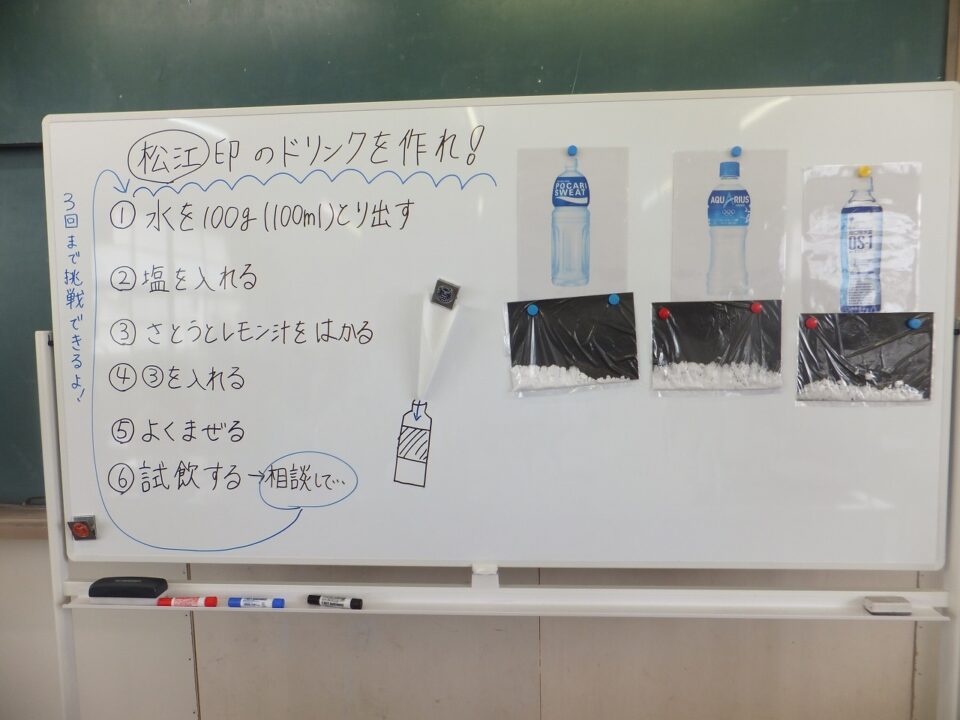 松江印のドリンクを作れ!
3回まで挑戦できるよ!
① 水を100g(100ml)とり出す
② 塩を入れる
③ さとうとレモン汁をはかる
④ ③を入れる
⑤ よくまぜる
⑥ 試飲する→相談して…
POCARI
SWEAT
AQUARIUS
OS-1